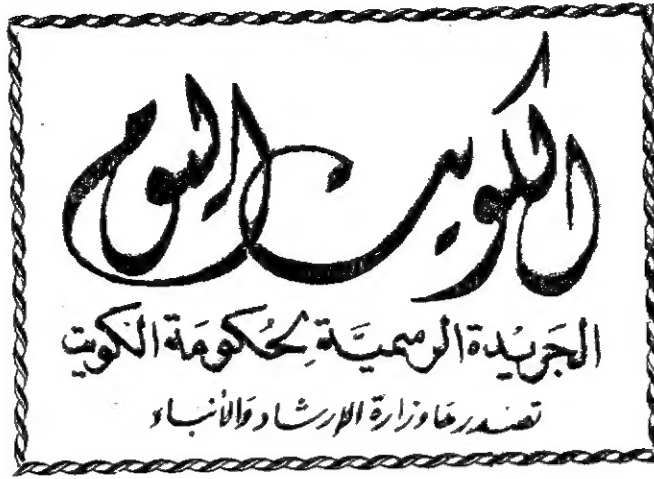 الكويت اليوم
الجَريدة الرسميَّة لِحُكومَة الكويت
تصدرها وزارة الإرشاد والأنباء